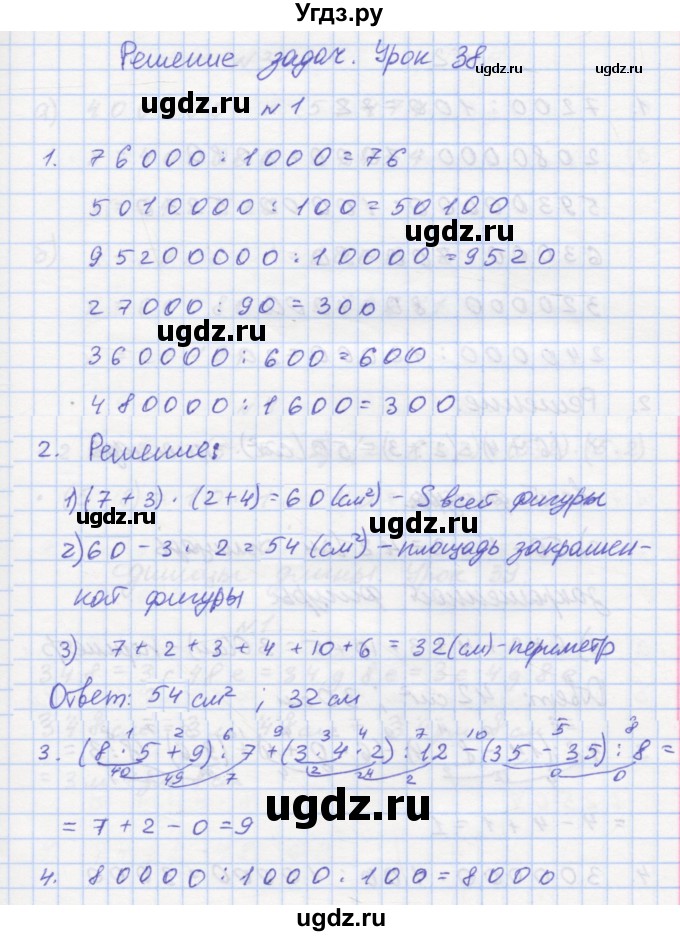 Угдз.ру
Решение задач. Урок 38.
ugdz.ru ugdz.ru
ugdz.ru №1
1. 76000 : 1000 = 76
5010000 : 100 = 50100
ugdz.ru
95200000 : 10000 = 9520
27000 : 90 = 300
ugdz.ru
360000 : 600 = 600
480000 : 1600 = 300
2. Решение:
1) (7 + 3) · (2 + 4) = 60 (см²) – S всей фигуры
ugdz.ru ugdz.ru
2) 60 – 3 · 2 = 54 (см²) – площадь закрашен-
ной фигуры
3) 7 + 2 + 3 + 4 + 10 + 6 = 32 (см) – периметр
Ответ: 54 см² ; 32 см
1 2 6 9 3 4 7 10 5 8
3. (8 · 5 + 9) : 7 + (3 · 4 · 2) : 12 – (35 – 35) : 8 =
40 49 7 12 24 2 0 0
ugdz.ru
= 7 + 2 – 0 = 9
4. 80000 : 1000 · 100 = 8000
ugdz.ru
ugdz.ru